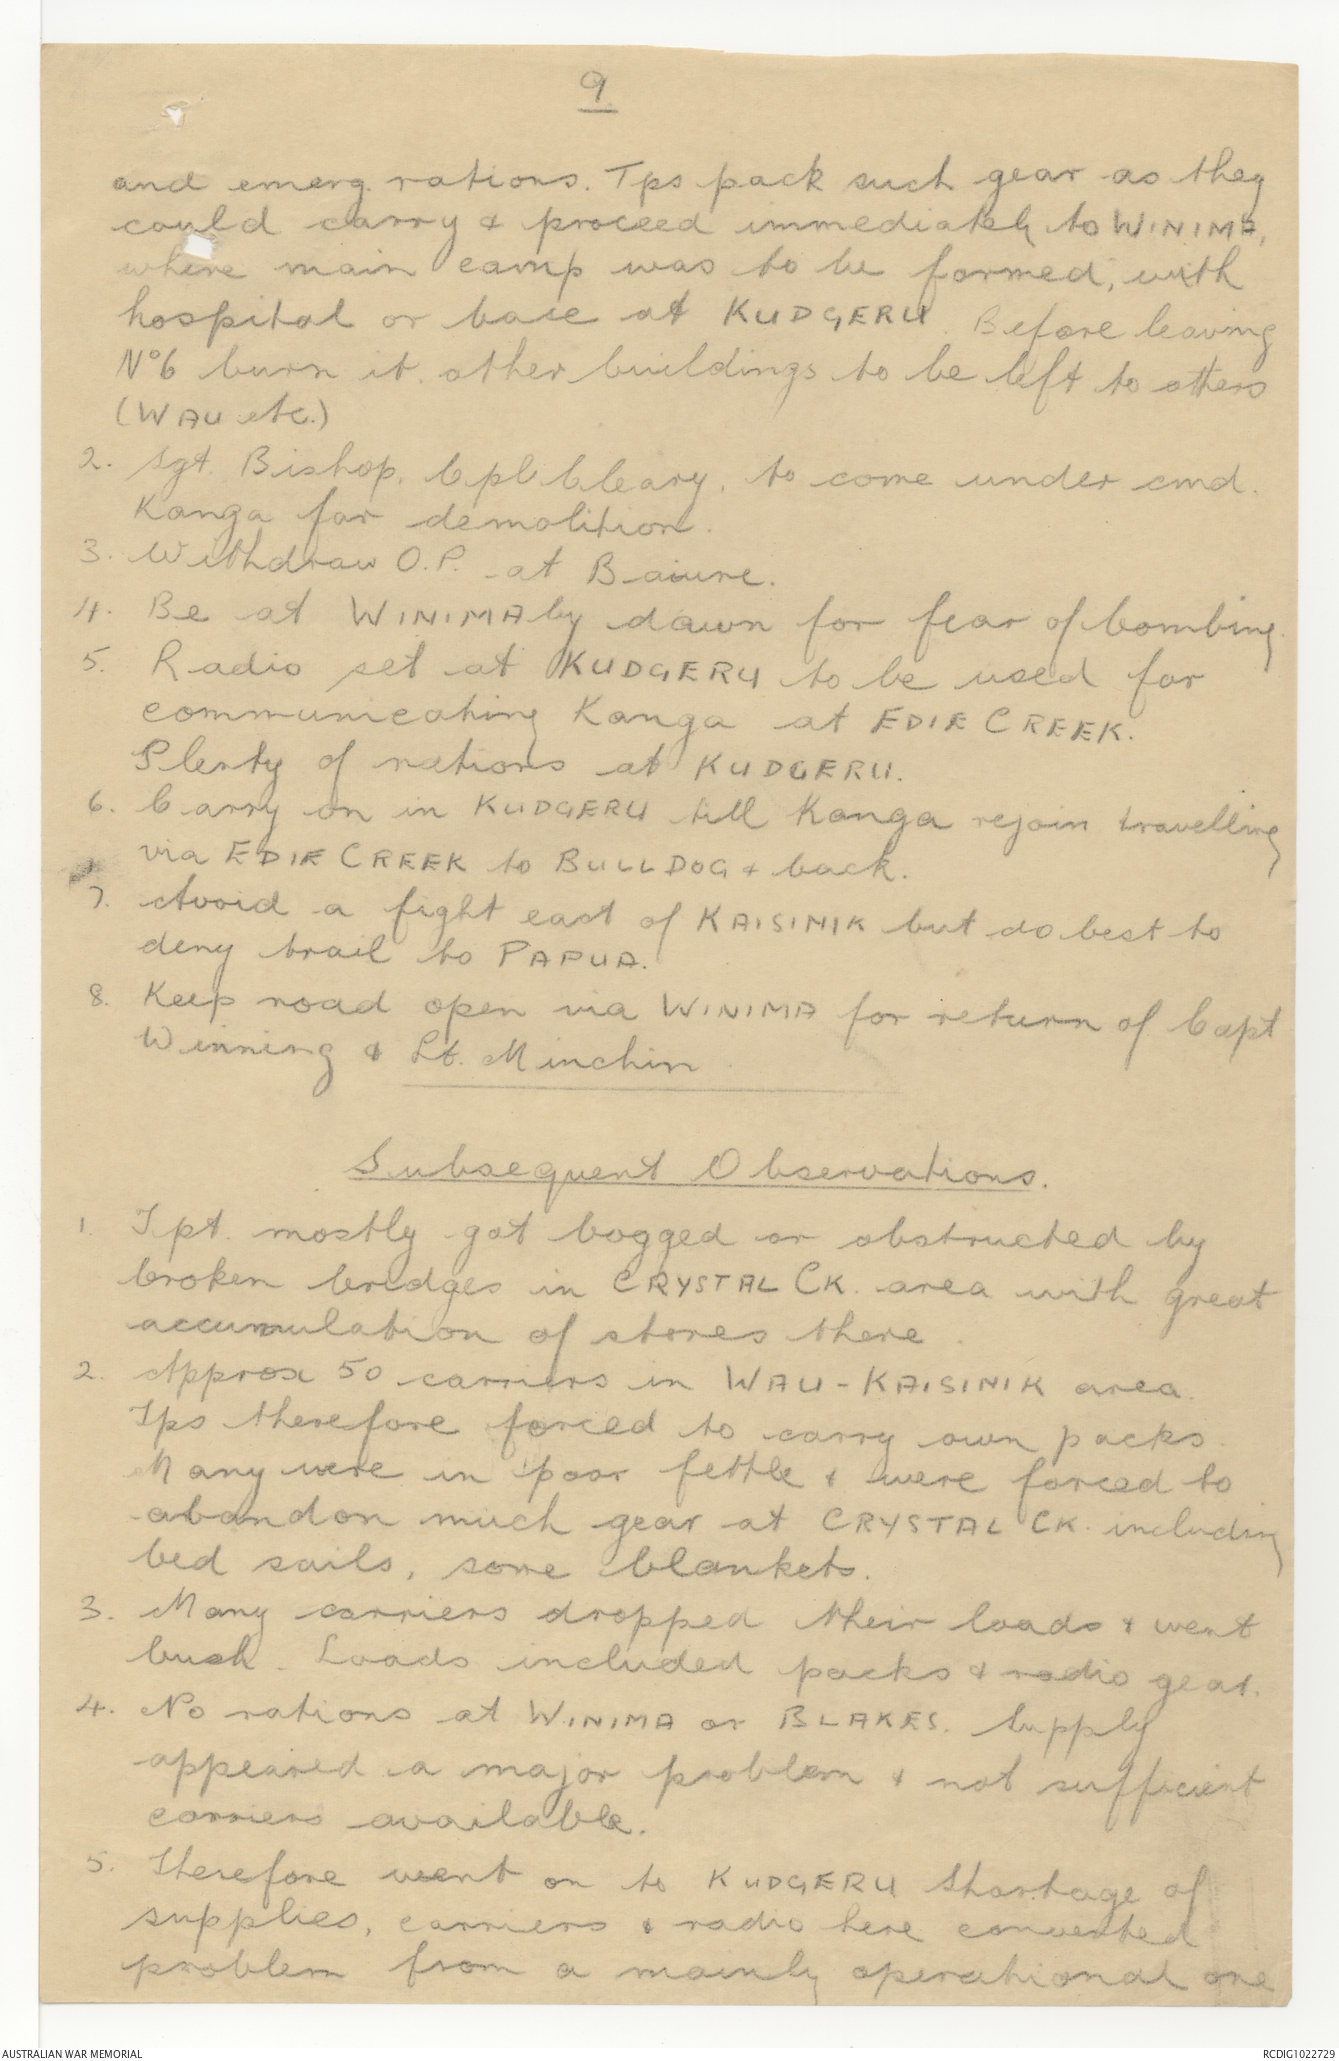 9
and emerg. rations. Tps pack such gear as they
could carry & proceed immediately to WINIMA,
where main camp was to be formed, with
hospital or base at KUDGERU. Before leaving
No 6 burn it. other buildings to be left to others
(WAU etc.)
2. Sgt. Bishop, Cpl Cleary, to come under cmd.
Kanga for demolition.
3. Withdraw O.P. at Baiune.
4. Be at WINIMA by dawn for fear of bombing.
5. Radio set at KUDGERU to be used for
communicating Kanga at EDIE CREEK.
Plenty of rations at KUDGERU.
6. Carry on in KUDGERU till Kanga rejoin travelling
via EDIE CREEK to BULLDOG & back.
7. Avoid a fight east of KAISINIK but do best to
deny trail to PAPUA.
8. Keep road open via WINIMA for return of Capt
Winning & Lt. Minchin
Subsequent Observations.
1. Tpt. mostly got bogged or obstructed by
broken bridges in CRYSTAL CK. area with great
accumulation of stores there.
2. Approx 50 carriers in WAU-KAISINIK area.
Tps therefore forced to carry own packs.
Many were in poor fettle & were forced to
abandon much gear at CRYSTAL CK. including
bed sails, some blankets.
3. Many carriers dropped their loads & went
bush. Loads included packs & radio gear.
4. No rations at WINIMA or BLAKES. Supply
appeared a major problem & not sufficient
carriers available.
5. Therefore went on to KUDGERU Shortage of
supplies, carriers & radio here converted
problem from a mainly operational one
AUSTRALIAN WAR MEMORIAL
RCDIG1022729